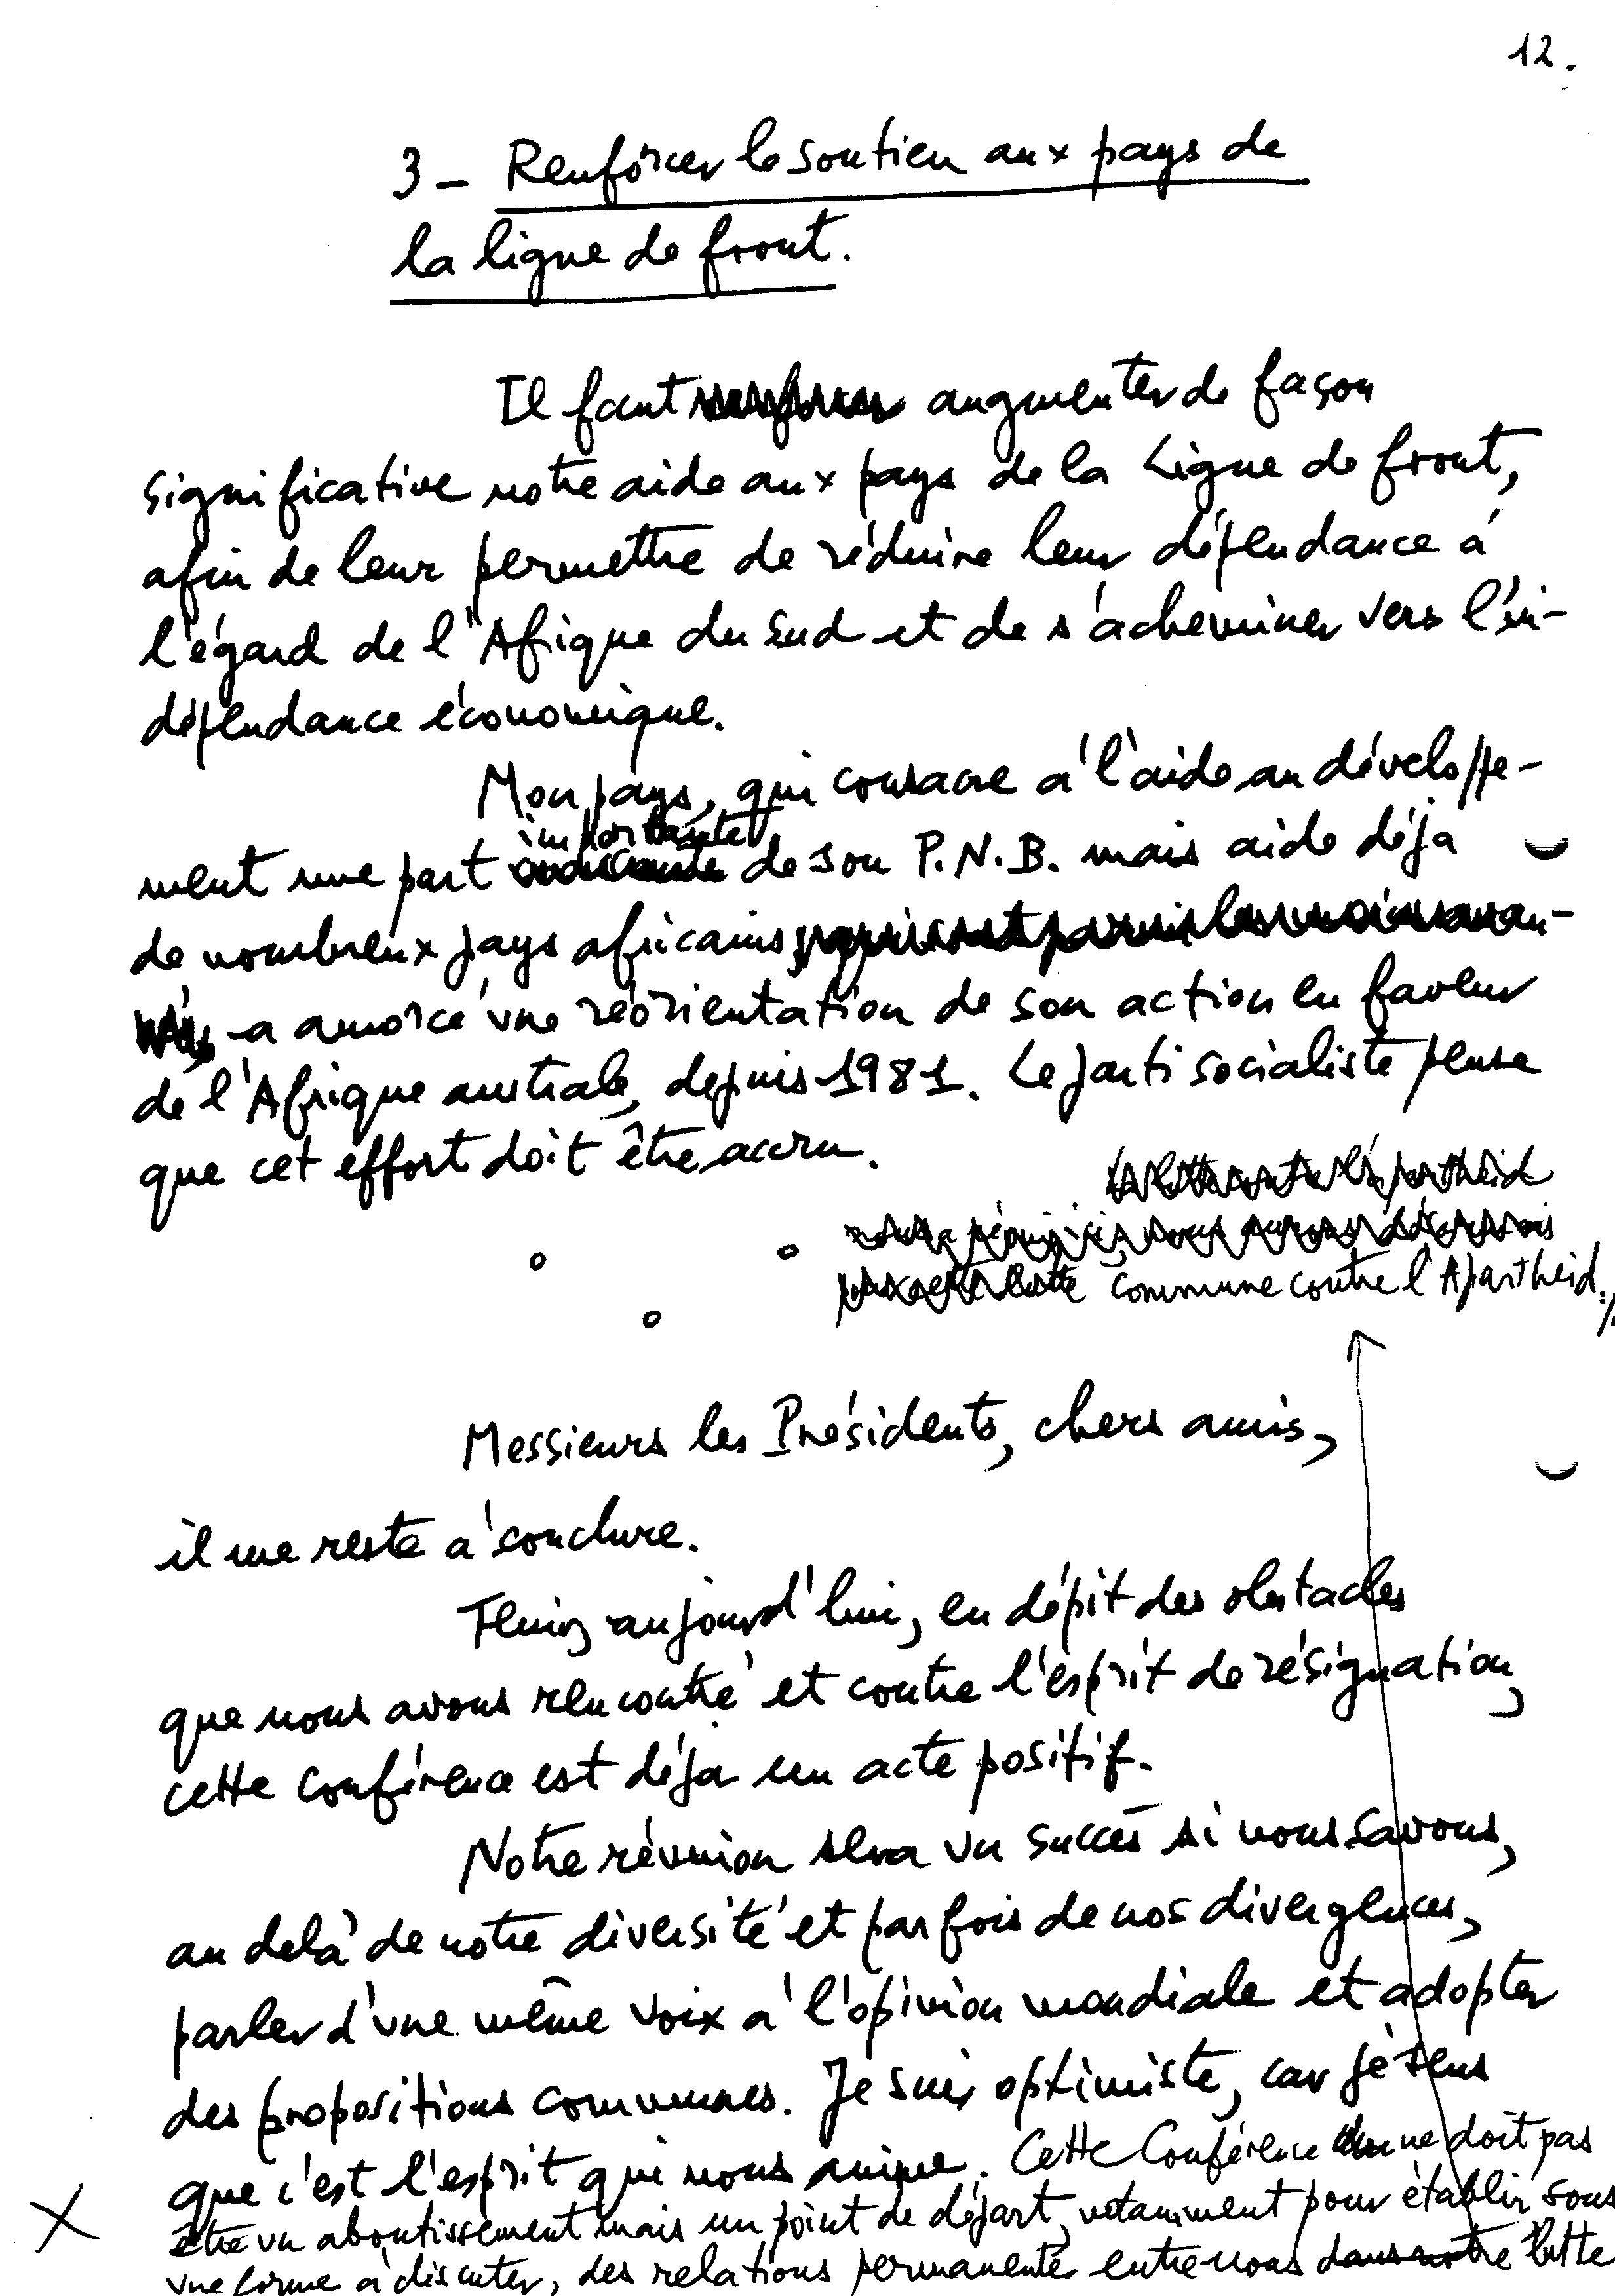 12.
3 - Renforcer le soutien aux pays de
la ligne de front.
Il faut augmenter de façon
significative notre aide aux pays de la Ligne de front,
afin de leur permettre de réduire leur dépendance à
l'égard de l'Afrique du Sud et de s'acheminer vers l'in-
dépendance économique.
Mon pays, qui consacre à l'aide au développe-
importante
ment une part de son P.N.B. mais aide déjà
de nombreux pays africains,
a amorcé une réorientation de son action en faveur
de l'Afrique australe, depuis 1981. Le parti socialiste pense
que cet effort doit être accru.
la lutte contre l'apartheid
commune contre l'Apartheid.
Messieurs les Présidents, chers amis,
il me reste à conclure.
Tenir aujourd'hui, en dépit des obstacles
que nous avons rencontré et contre l'esprit de résignation,
cette conférence est déjà un acte positif.
Notre réunion sera un succès si nous savons,
au delà de notre diversité et parfois de nos divergences,
parler d'une même voix à l'opinion mondiale et adopter
des propositions communes. Je suis optimiste, car je sens
que c'est l'esprit qui nous anime. Cette Conférence ne doit pas
être un aboutissement mais un point de départ, notamment pour établir sous
une forme à discuter, des relations permanentes entre nous dans notre lutte